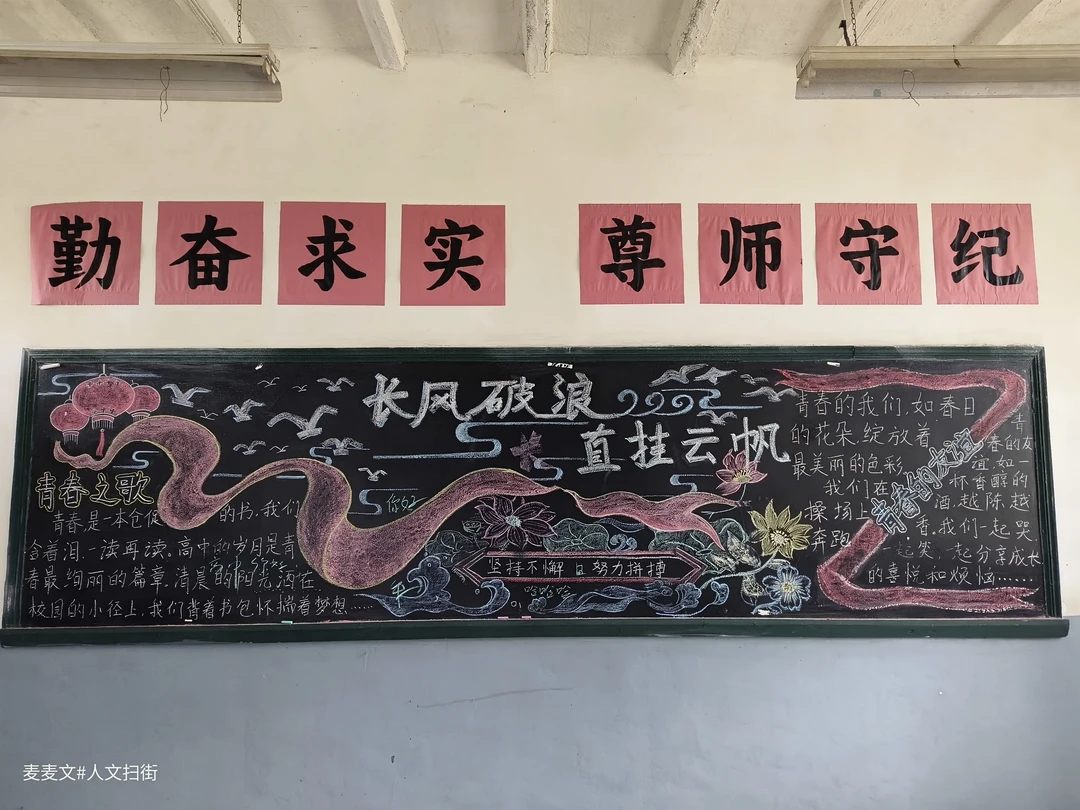 勤奋求实 尊师守纪
长风破浪
直挂云帆
青春之歌
青春是一本仓促的书.我们
含着泪.一读再读.高中的岁月是青
春最绚丽的篇章.清晨的阳光洒在
校园的小径上.我们背着书包怀揣着梦想……
坚持不懈 努力拼搏
哈哈哈
青春的友谊
青春的我们.如春日
的花朵.绽放着
最美丽的色彩
我们在
操场上
奔跑
青
春的友
谊.如一
杯香醇的
酒.越陈越
香.我们一起哭
一起笑.一起分享成长
的喜悦和烦恼……
麦麦文#人文扫街